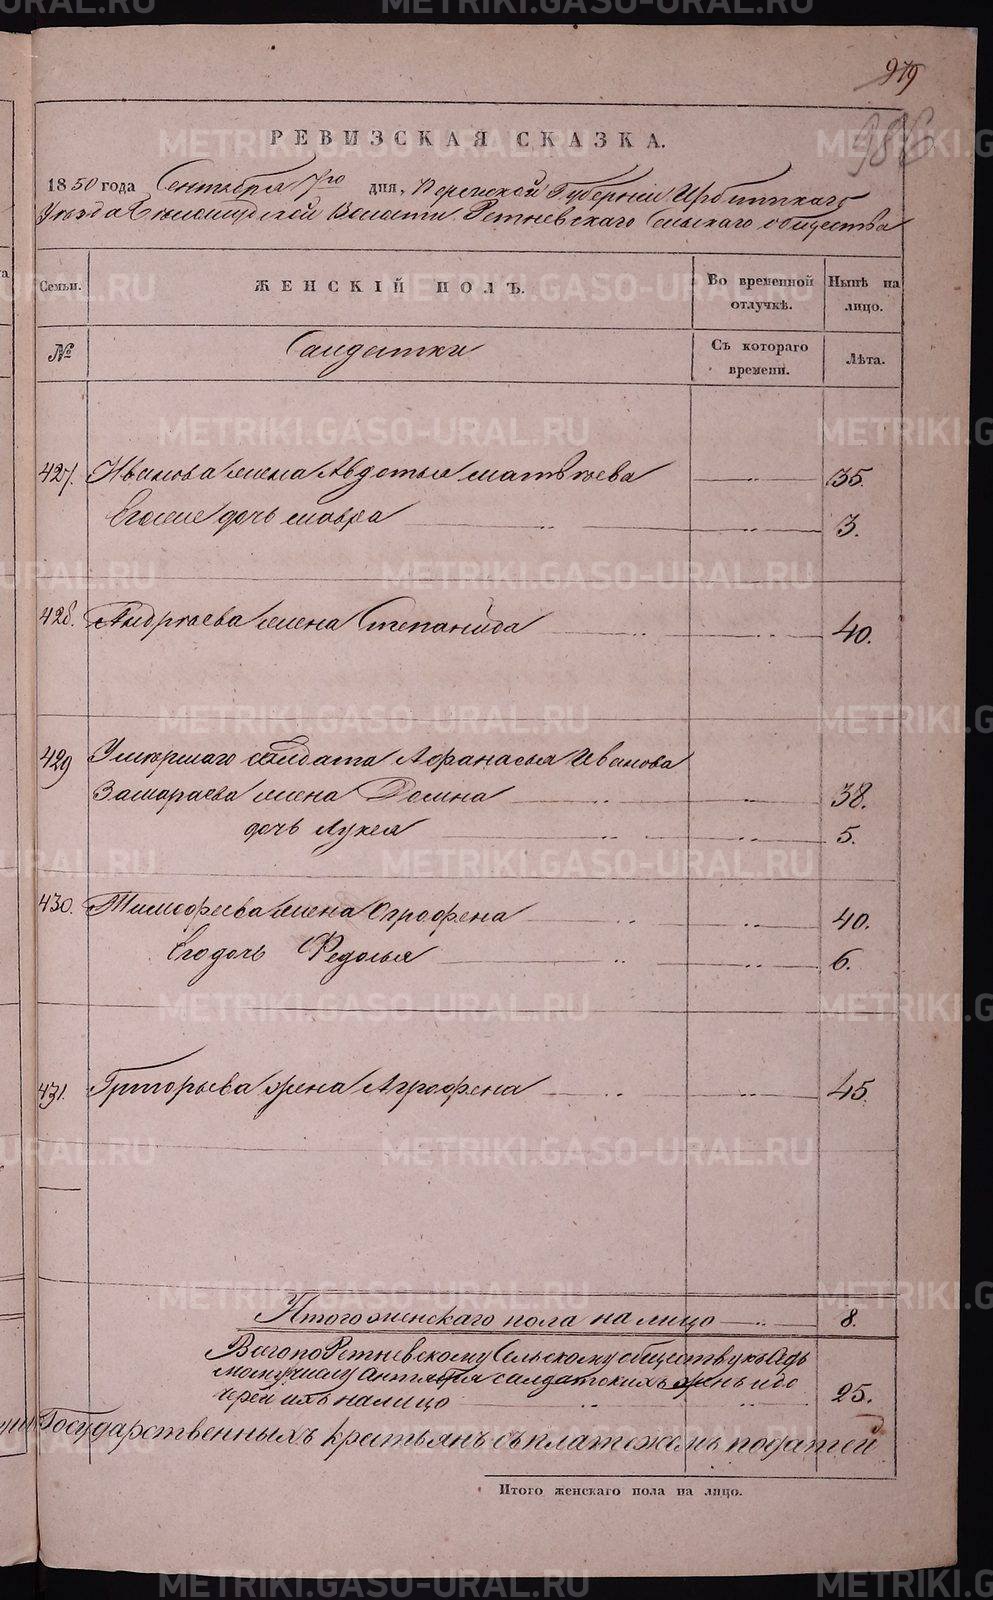 979
986
РЕВИЗСКАЯ СКАЗКА.
1850 года Сентября 7го дня, Пермской Губернии Ирбитскаго
Уезда Волости Ретневскаго Сельскаго общества
Семьи.
ЖЕНСКІЙ ПОЛЪ.
Во временной отлучкѣ.
Нынѣ на лицо.
№
Салдатки
Съ котораго времени.
Лѣта.
427. Иванова жена Авдотья Матвѣева 35.
Егоже дочь Мавра 3.
428. Андреева жена Степанида 40.
429 Умершаго солдата Афанасья Иванова
Замараева жена Домна 38.
дочь Лукея 5.
430. Тимофеева жена Огрофена 40.
Его дочь Федосья 6.
431. Григорьева жена Агрофена 45.
Итого женскаго пола на лицо 8.
Всего по Ретневскому Сельскому обществу къ седь
мому числу Сентября салдатскихъ женъ и до
черей ихъ на лицо 25.
Государственныхъ крестьянъ съ платежемъ податей
Итого женскаго пола на лицо.
METRIKI.GASO-URAL.RU